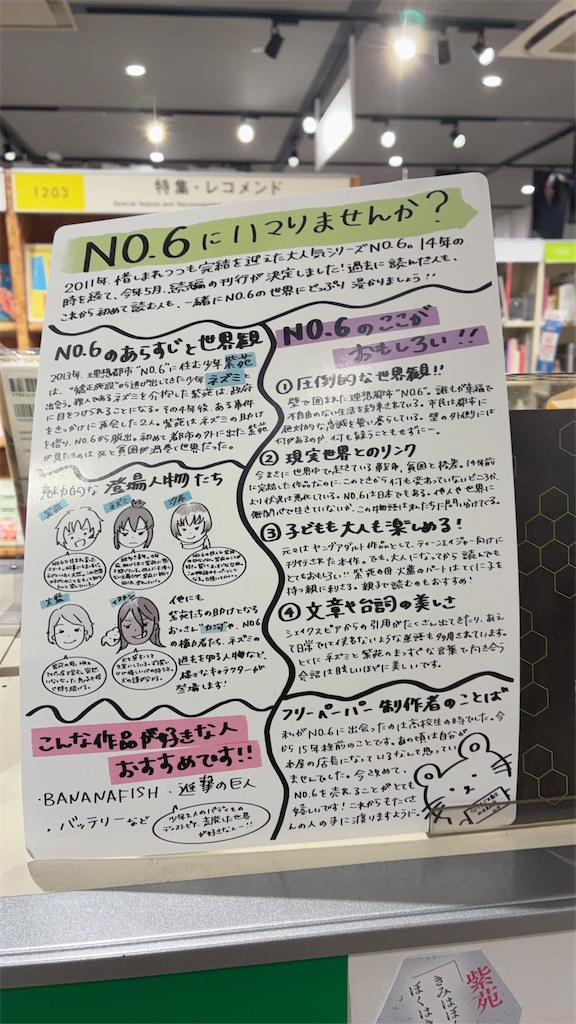 1203
特集・レコメンド
Special feature and Recommended
NO.6にハマりませんか?
2011年、惜しまれつつも完結を迎えた大人気シリーズNO.6。14年の
時を経て、今年5月、続編の刊行が決定しました!過去に読んだ人も、
これから初めて読む人も、一緒にNO.6の世界にどっぷり浸かりましょう!!
NO.6のあらすじと世界観
2013年、理想都市"NO.6"に住む少年紫苑
は、"矯正施設"から逃げ出してきた少年ネズミと
出会う。罪人であるネズミを介抱した紫苑は、政府
に目をつけられることになる。その4年後、ある事件
をきっかけに再会した2人。紫苑はネズミの助け
を借り、NO.6から脱出。初めて都市の外に出た紫苑
が見たものは死と貧困が過巻く世界だった。
魅力的な登場人物たち
紫苑
ネズミ
沙布
火藍
イヌカシ
他にも
紫苑たちの助けとなる
おっさん"力河"や、NO.6
の棲み者たち、ネズミの
過去を知る人物など、
様々なキャラクターが
登場します!
こんな作品が好きな人
おすすめです!!
・BANANAFISH ・進撃の巨人
・バッテリーなど
少年2人のバディもの
ディストピア、荒廃した世界
が好きな人ー!!
NO.6のここが
おもしろい!!
①圧倒的な世界観!!
壁で囲まれた理想都市"NO.6"。誰もが幸福で
不自由のない生活を約束されている。市民は都市に
絶対的な忠誠を誓い暮らしている。壁の外側には
何があるのか、何も疑うこともせずに…。
②現実世界とのリンク
今まさに世界中で起きている戦争、貧困と格差。14年前
に完結した作品なのに、このときから何も変わっていないどころか、
より状況は悪化している。NO.6は日本でもある。他人や世界に
無関心で生きていないか、この物語は私たちに問いかけてくる。
③子どもも大人も楽しめる!
元々はヤングアダルト作品として、ティーンエイジャー向けに
刊行された本作。でも、大人になってから読んでも
とてもおもしろい!!紫苑の母・火藍のパートはとくに子を
持つ親に刺さる。親子で読むのもおすすめ!
④文章や台詞の美しさ
シェイクスピアからの引用がたくさん出てきたり、あえ
て日常では使わないような単語も多用されています。
とくにネズミと紫苑のまっすぐな言葉で向き合う
会話は眩しいほどに美しいです。
フリーペーパー制作者のことば
私がNO.6に出会ったのは高校生の時でした。今
から15年程前のことです。あの頃は自分が
本屋の店長になっているなんて思ってい
ませんでした。今改めて、
NO.6を売れることがとても
嬉しいです!これからもたくさ
んの人の手に渡りますように。
紫苑
きみはほ
ぼくはき